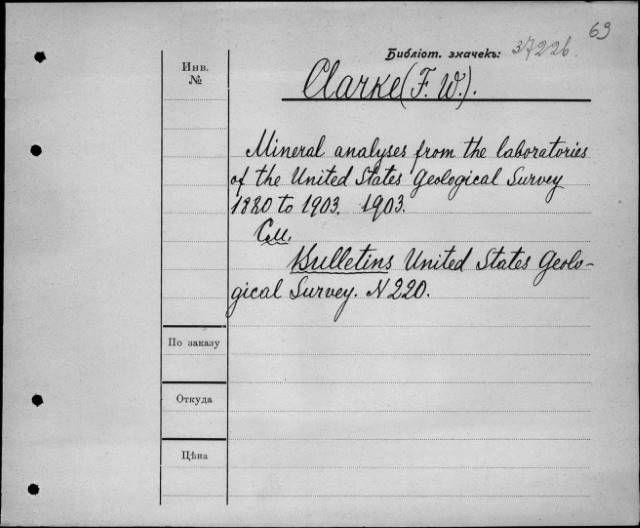 69
Библіот. значекъ: 37226.
Инв.
№
Clarke (F. W.).
Mineral analyses from the laboratories
of the United States Geological Survey
1880 to 1903. 1903.
См.
Bulletins United States Geolo-
gical Survey. N 220.
По заказу
Откуда
Цѣна